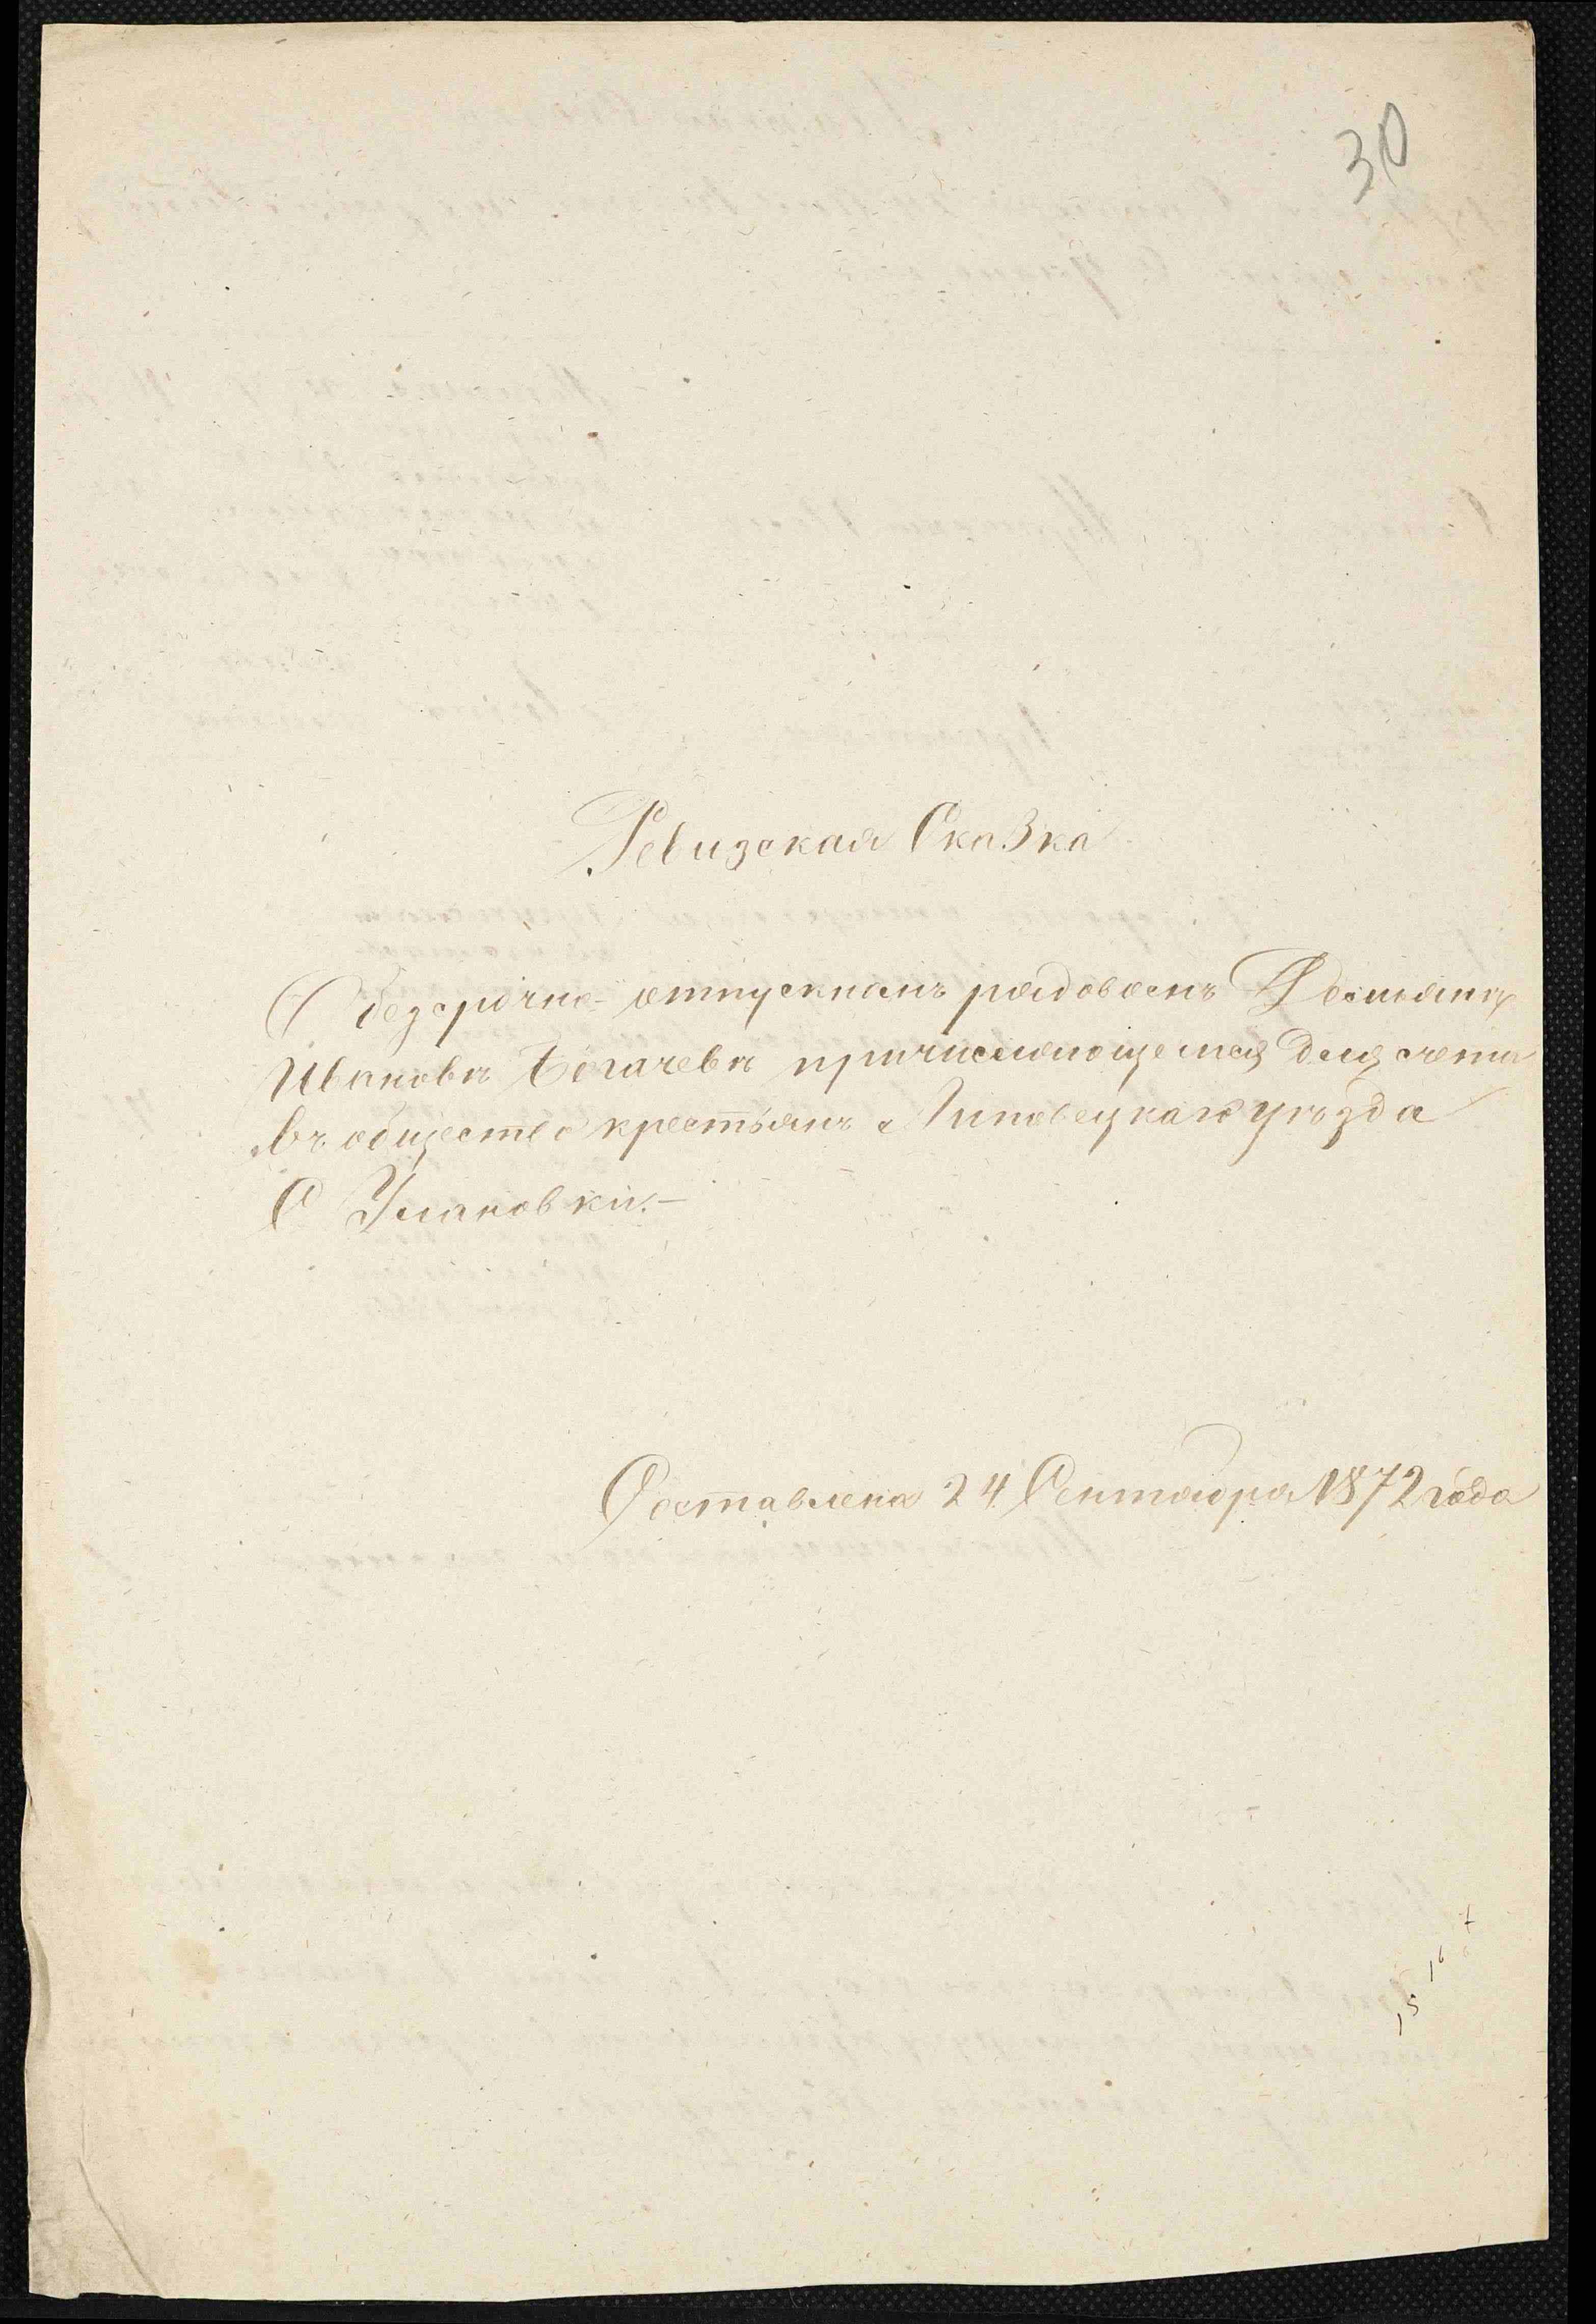 30
Ревизская Сказка
О безсрочно-отпускномъ рядовомъ Демьянѣ
Ивановѣ Богачевѣ причисляющемся для счета
въ общество крестьянъ Липовецкаго уѣзда
С Улановки.—
Составлена 24 Сентября 1872 года
15 16